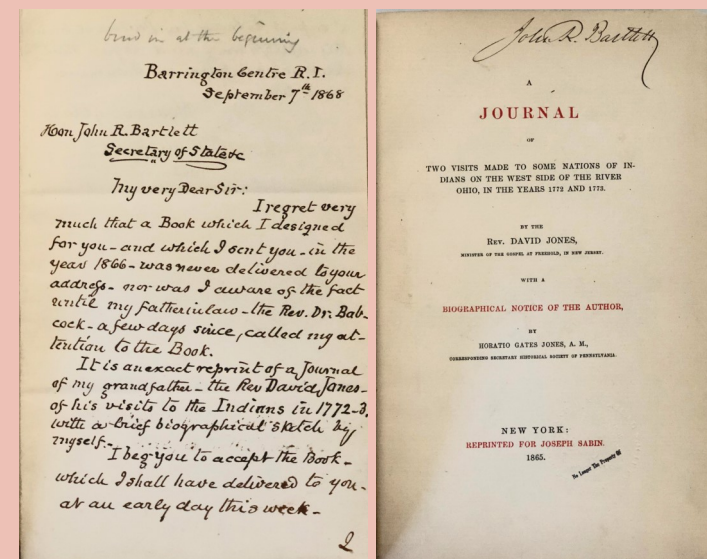 bind in at the beginning
Barrington Centre R.I.
September 7th 1868
Hon John R. Bartlett
Secretary of State &c
My very Dear Sir:
I regret very
much that a Book which I designed
for you - and which I sent you - in the
year 1866 - was never delivered to your
address - nor was I aware of the fact
until my father in law - the Rev. Dr. Bab-
cock - a few days since, called my at-
tention to the Book.
It is an exact reprint of a Journal
of my grandfather - the Rev David Jones -
of his visits to the Indians in 1772-3.
with a brief biographical sketch by
myself. -
I beg you to accept the Book -
which I shall have delivered to you -
at an early day this week -
2
John R. Bartlett
A
JOURNAL
OF
TWO VISITS MADE TO SOME NATIONS OF IN-
DIANS ON THE WEST SIDE OF THE RIVER
OHIO, IN THE YEARS 1772 AND 1773.
BY THE
REV. DAVID JONES,
MINISTER OF THE GOSPEL AT FREEHOLD, IN NEW JERSEY.
WITH A
BIOGRAPHICAL NOTICE OF THE AUTHOR,
BY
HORATIO GATES JONES, A. M.,
CORRESPONDING SECRETARY HISTORICAL SOCIETY OF PENNSYLVANIA.
NEW YORK:
REPRINTED FOR JOSEPH SABIN.
1865.
No Longer The Property Of